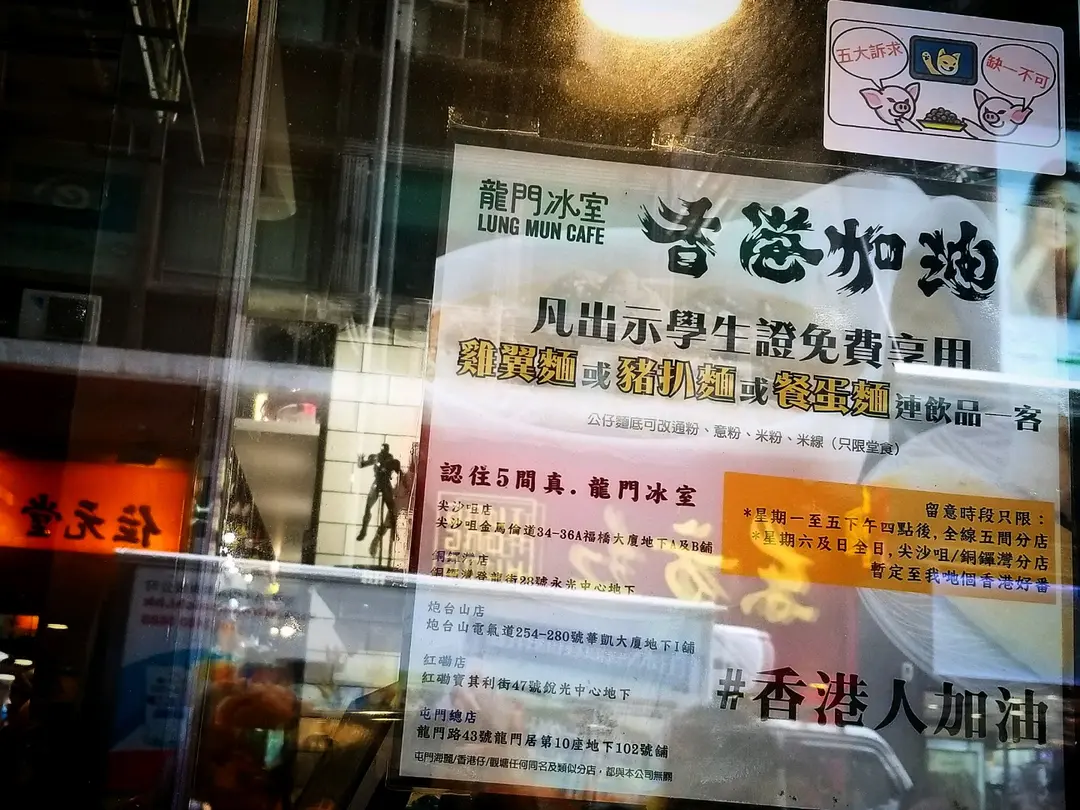 五大訴求
缺一不可
龍門冰室
LUNG MUN CAFE
香港加油
凡出示學生證免費享用
雞翼麵或豬扒麵或餐蛋麵連飲品一客
公仔麵底可改通粉、意粉、米粉、米線（只限堂食）
認住5間真．龍門冰室
尖沙咀店
尖沙咀金馬倫道34-36A福橋大廈地下A及B舖
銅鑼灣店
銅鑼灣登龍街28號永光中心地下
炮台山店
炮台山電氣道254-280號華凱大廈地下I舖
紅磡店
紅磡寶其利街47號銳光中心地下
屯門總店
龍門路43號龍門居第10座地下102號舖
屯門海麗/香港仔/觀塘任何同名及類似分店，都與本公司無關
留意時段只限：
*星期一至五下午四點後，全線五間分店
*星期六及日全日，尖沙咀/銅鑼灣分店
暫定至我哋個香港好番
#香港人加油
位元堂